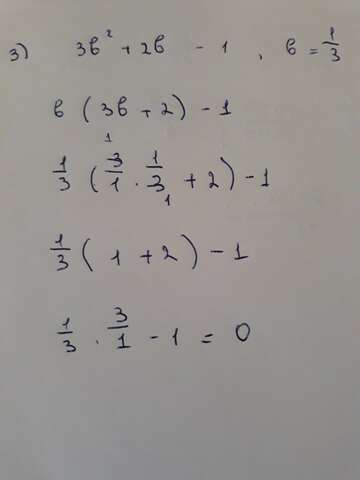 3) 3b² + 2b - 1 , b = 1/3
b ( 3b + 2 ) - 1
1/3 ( 3/1 · 1/3 + 2 ) - 1
1/3 ( 1 + 2 ) - 1
1/3 · 3/1 - 1 = 0